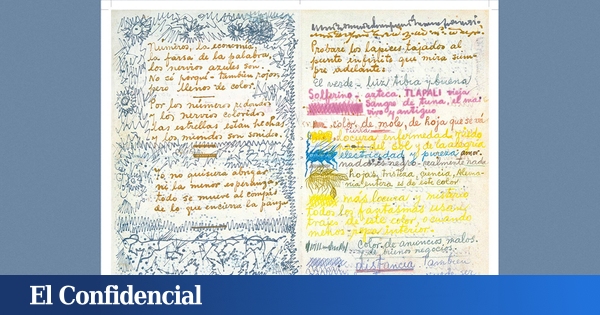 Numeros, la economía
la farsa de la palabra,
los nervios azules son.
No sé porqué - también rojos
pero llenos de color.
Por los números redondos
y los nervios colorados
las estrellas están hechas
y los mundos son sonidos.
Yo no quisiera abrigar
ni la menor esperanza,
todo se mueve al compás
de lo que encierra la panza
Probaré los lápices tajados al
punto infinito que mira siem-
pre adelante:
El verde - luz tibia y buena
Solferino - azteca. TLAPALI vieja
Sangre de tuna, el más
vivo y antiguo
color de mole, de hoja que se va
tierra
locura enfermedad miedo
parte del sol y de la alegría
electricidad y pureza amor.
nada es negro - realmente nada
hojas, tristeza, ciencia, Alema-
nia entera es de este color
más locura y misterio
todos los fantasmas usan
trajes de este color, o cuando
menos ropa interior.
Color de anuncios malos
y de buenos negocios.
distancia. También
puede ser
El Confidencial